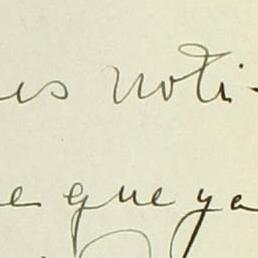 es noti-
e que ya